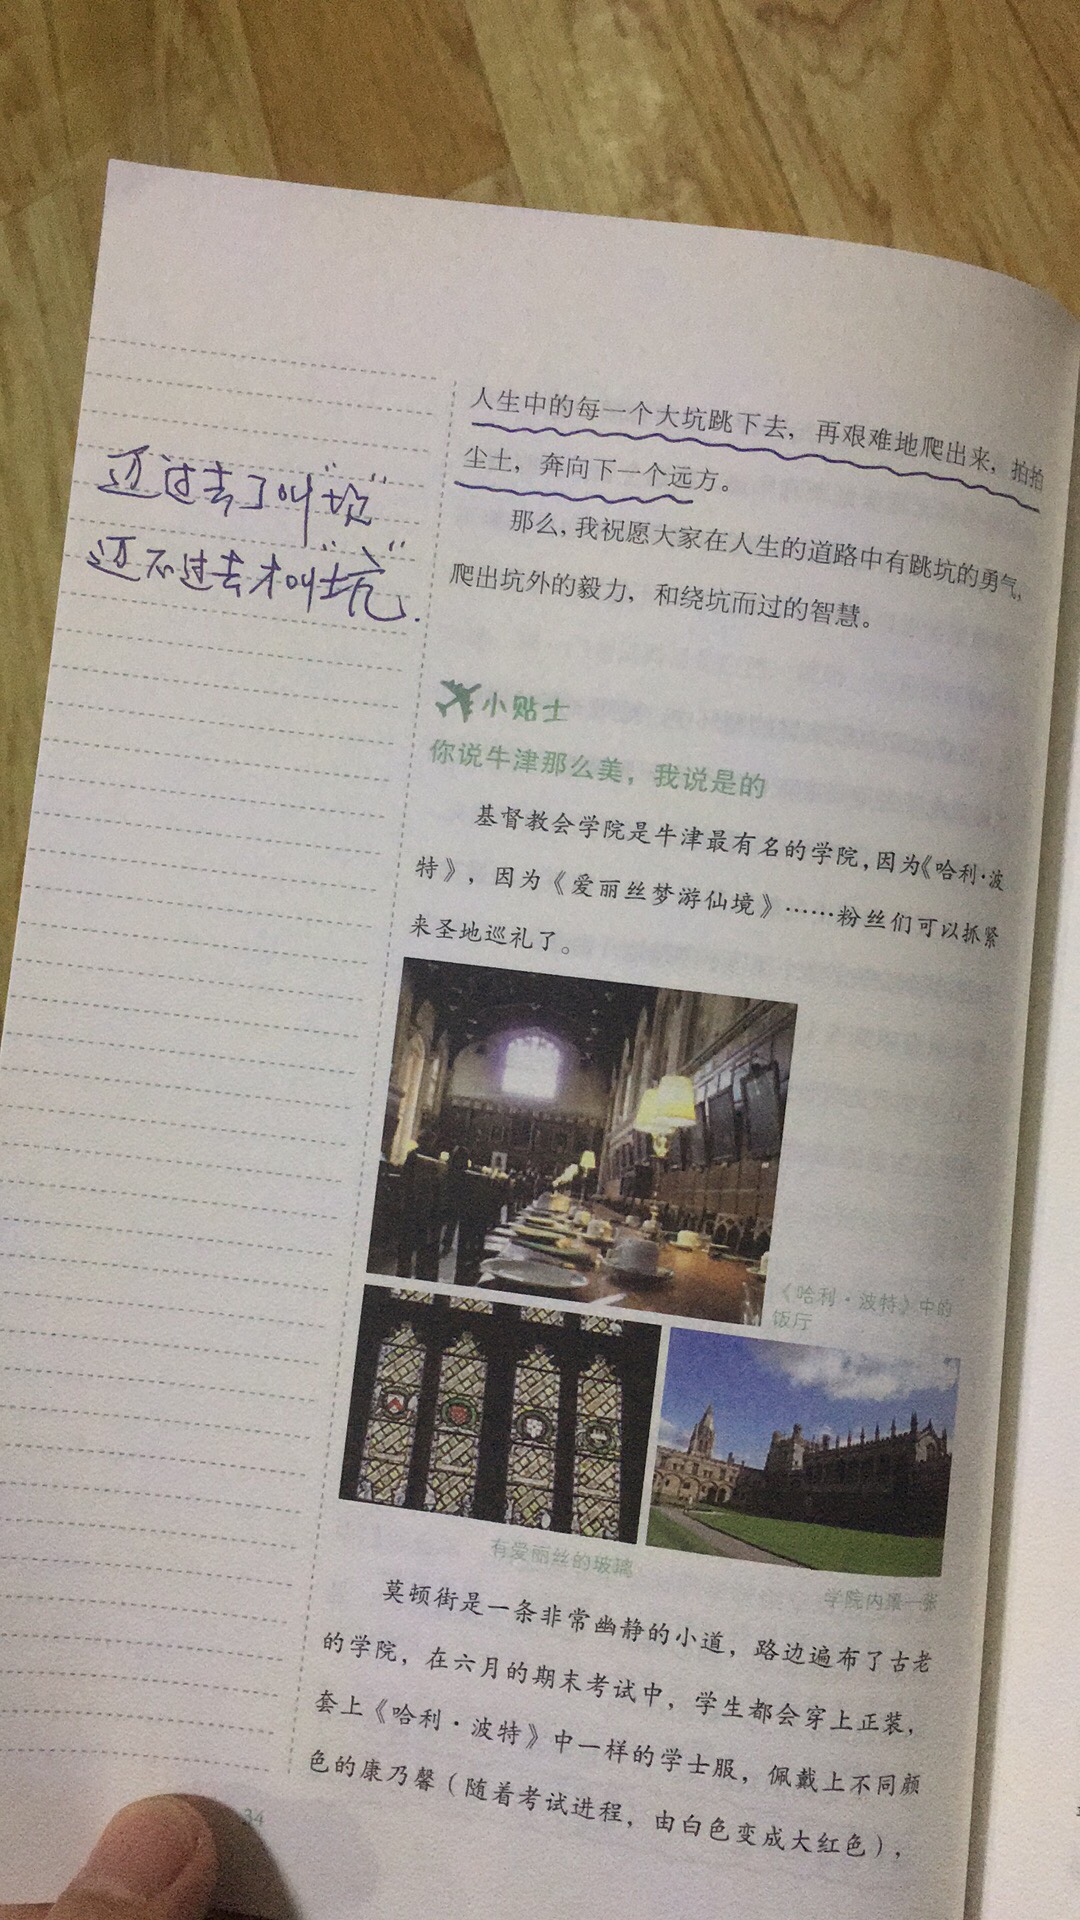 迈过去了叫“坎”
迈不过去才叫“坑”.
人生中的每一个大坑跳下去，再艰难地爬出来，拍拍
尘土，奔向下一个远方。
那么，我祝愿大家在人生的道路中有跳坑的勇气，
爬出坑外的毅力，和绕坑而过的智慧。
小贴士
你说牛津那么美，我说是的
基督教会学院是牛津最有名的学院，因为《哈利·波
特》，因为《爱丽丝梦游仙境》……粉丝们可以抓紧
来圣地巡礼了。
《哈利·波特》中的
饭厅
有爱丽丝的玻璃
学院内景一张
莫顿街是一条非常幽静的小道，路边遍布了古老
的学院，在六月的期末考试中，学生都会穿上正装，
套上《哈利·波特》中一样的学士服，佩戴上不同颜
色的康乃馨（随着考试进程，由白色变成大红色），
34